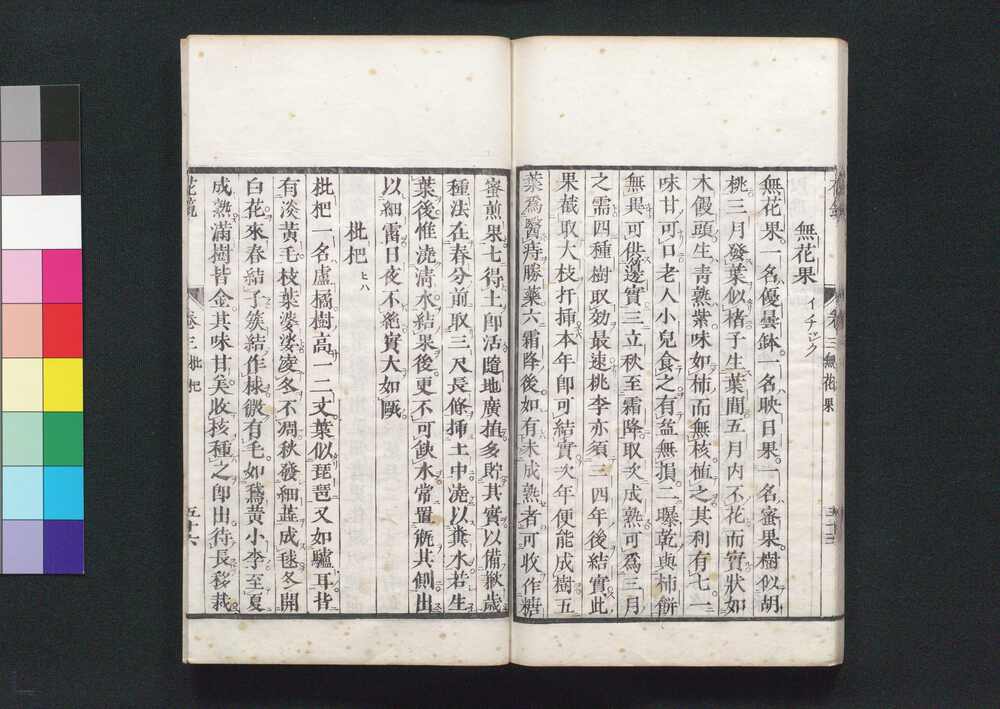 無花果 イチヂク
無花果一名優曇鉢一名映日果一名蜜果樹似胡
桃三月發葉似楮子生葉間五月内不花而實狀如
木饅頭生青熟紫味如柿而無核植之其利有七一
味甘可口老人小兒食之有益無損二曝乾與柿餅
無異可供籩實三立秋至霜降取次成熟可爲三月
之需四種樹取効最速桃李亦須三四年後結實此
果截取大枝扦挿本年卽可結實次年便能成樹五
葉爲醫痔勝藥六霜降後如有未成熟者可收作糖
蜜煎果七得土卽活隨地廣植多貯其實以備歉歳
種法在春分前取三尺長條挿土中澆以糞水若生
葉後惟澆清水結果後更不可缺水常置缾其側出
以細霤日夜不絶實大如甌
枇杷 ヒハ
枇杷一名盧橘樹高一二丈葉似琵琶又如驢耳背
有淡黄毛枝葉婆娑凌冬不凋秋發細蕋成毬冬開
白花來春結子簇結作梂微有毛如鵞黄小李至夏
成熟滿樹皆金其味甘美收核種之卽出待長移栽
卷三 無花果
卷三 枇杷
五十六